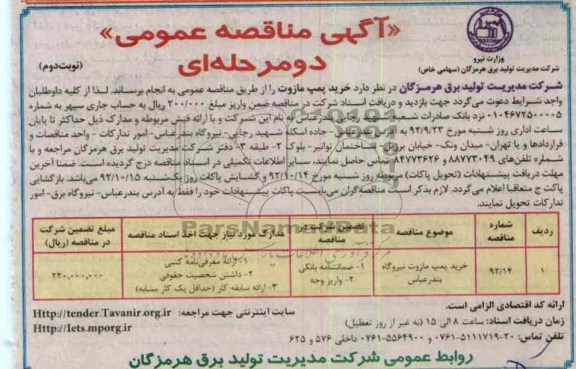 «آگهی مناقصه عمومی»
دومرحله‌ای
(نوبت‌دوم)
وزارت نیرو
شرکت مدیریت تولید برق هرمزگان (سهامی خاص)
شرکت مدیریت تولید برق هرمزگان در نظر دارد خرید پمپ مازوت را از طریق مناقصه عمومی به انجام برساند. لذا از کلیه داوطلبان
واجد شرایط دعوت می‌گردد جهت بازدید و دریافت اسناد شرکت در مناقصه ضمن واریز مبلغ ۲۰۰/۰۰۰ ریال به حساب جاری سپهر به شماره
۰۱۰۴۶۷۲۵۰۰۰۵ نزد بانک صادرات شعبه نیروگاه بندرعباس به نام این شرکت و با ارائه فیش مربوطه و مدارک ذیل حداکثر تا پایان
ساعت اداری روز شنبه مورخ ۹۲/۹/۲۳ به آدرس: بندرعباس- جاده اسکله شهید رجایی- نیروگاه بندرعباس- امور تدارکات - واحد مناقصات و
قراردادها و یا تهران- میدان ونک- خیابان برزیل- ساختمان توانیر- بلوک ۲- طبقه ۳- دفتر شرکت مدیریت تولید برق هرمزگان مراجعه و یا
شماره تلفن‌های ۸۸۷۷۳۰۴۹ و ۸۴۷۷۳۶۲۶ تماس حاصل نمایند. سایر اطلاعات تکمیلی در اسناد مناقصه درج گردیده است. ضمنا آخرین
مهلت دریافت پیشنهادات (تحویل پاکات) مربوطه روز شنبه مورخ ۹۲/۱۰/۱۴ و گشایش پاکات روز یکشنبه ۹۲/۱۰/۱۵ می‌باشد. بازگشایی
پاکت ج متعاقبا اعلام می‌گردد. لازم بذکر است مناقصه‌گران می‌بایست پاکات پیشنهادات خود را فقط به آدرس بندرعباس- نیروگاه برق- امور
تدارکات تحویل نمایند.
ردیف | شماره مناقصه | موضوع مناقصه | تضمین شرکت در مناقصه | مدارک مورد نیاز جهت اخذ اسناد مناقصه | مبلغ تضمین شرکت در مناقصه (ریال)
۱ | ۹۲/۱۴ | خرید پمپ مازوت نیروگاه بندرعباس | ۱- ضمانتنامه بانکی ۲- واریز وجه | ۱- ارائه معرفی‌نامه کتبی ۲- داشتن شخصیت حقوقی ۳- ارائه سابقه کار (حداقل یک کار مشابه) | ۲۲۰,۰۰۰,۰۰۰
ارائه کد اقتصادی الزامی است.
سایت اینترنتی جهت مراجعه: Http://tender.Tavanir.org.ir
زمان دریافت اسناد: ساعت ۸ الی ۱۵ (به غیر از روز تعطیل)
Http://Iets.mporg.ir
تلفن تماس: ۲۰-۵۱۱۱۷۱۹-۰۷۶۱ و ۵۵۶۴۹۰۰-۰۷۶۱ داخلی ۵۷۶ و ۶۲۵
روابط عمومی شرکت مدیریت تولید برق هرمزگان
ParsNamadData